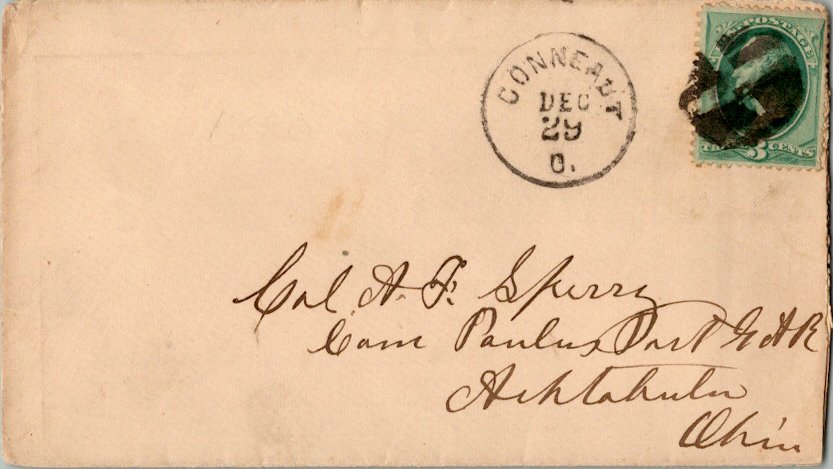 CONNEAUT
DEC
29
O.
POSTAGE
3 CENTS
Col A. F. Sperry
Com Paulus Post G A R
Ashtabula
Ohio